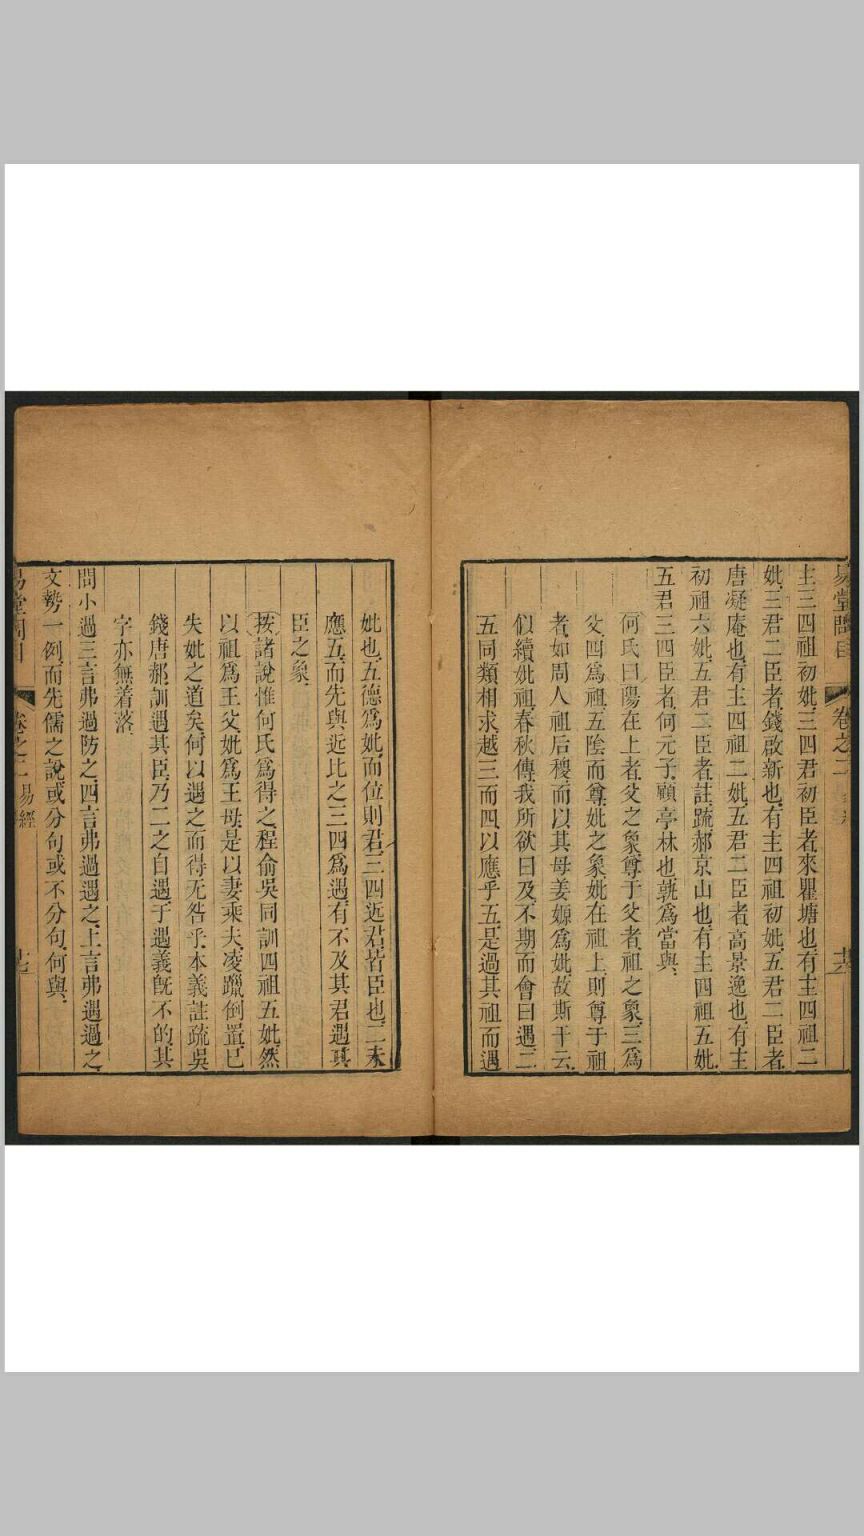 主三四祖初妣三四君初臣者來瞿塘也有主四祖二
妣三君二臣者錢啟新也有主四祖初妣五君二臣者
唐凝庵也有主四祖二妣五君二臣者高景逸也有主
初祖六妣五君二臣者註疏郝京山也有主四祖五妣
五君三四臣者何元子顧亭林也孰為當與
何氏曰陽在上者父之象尊于父者祖之象三爲
父四爲祖五陰而尊妣之象妣在祖上則尊于祖
者如周人祖后稷而以其母姜嫄爲妣故斯干云
似續妣祖春秋傳我所欲曰及不期而會曰遇二
五同類相求越三而四以應乎五是過其祖而遇
妣也五德爲妣而位則君三四近君皆臣也二未
應五而先與近比之三四爲遇有不及其君遇其
臣之象
按諸說惟何氏爲得之程俞吳同訓四祖五妣然
以祖爲王父妣爲王母是以妻乘夫凌躐倒置已
失妣之道矣何以遇之而得无咎乎本義註疏吳
錢唐郝訓遇其臣乃二之自遇于遇義旣不的其
字亦無着落
問小過三言弗過防之四言弗過遇之上言弗遇過之
文勢一例而先儒之說或分句或不分句何與
卷之二 易經